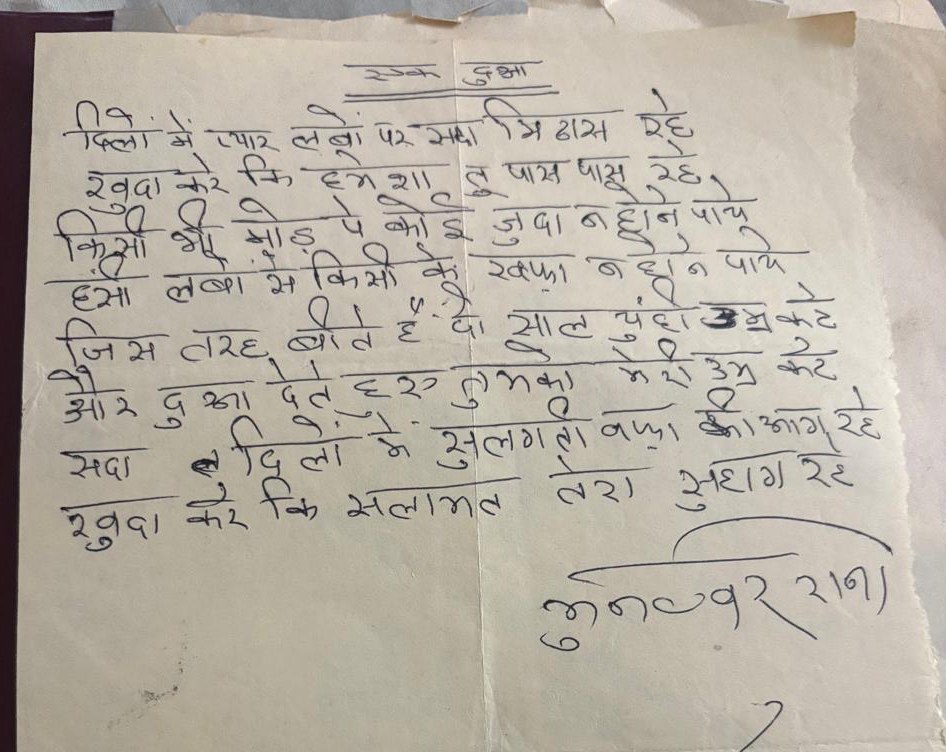 एक दुआ
दिलों में प्यार लबों पर सदा मिठास रहे
खुदा करे कि हमेशा तु पास पास रहे
किसी भी मोड़ पे कोई जुदा न होने पाये
हंसी लबों से किसी के खफ़ा न होने पाये
जिस तरह बीते हैं दो साल युंही उम्र कटे
और दुआ देते हुए तुमको मेरी उम्र कटे
सदा दिलों में सुलगती वफ़ा की आग रहे
खुदा करे कि सलामत तेरा सुहाग रहे
मुनव्वर राना